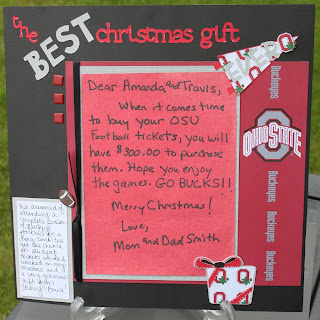 the BEST christmas gift
EVER
Dear Amanda and Travis,
When it comes time
to buy your OSU
Football tickets, you will
have $300.00 to purchase
them. Hope you enjoy
the games. GO BUCKS!!
Merry Christmas!
Love,
Mom and Dad Smith
Buckeyes
OHIO STATE
Buckeyes
Buckeyes
Buckeyes
attending a
complete season
of Buckeye
football for a